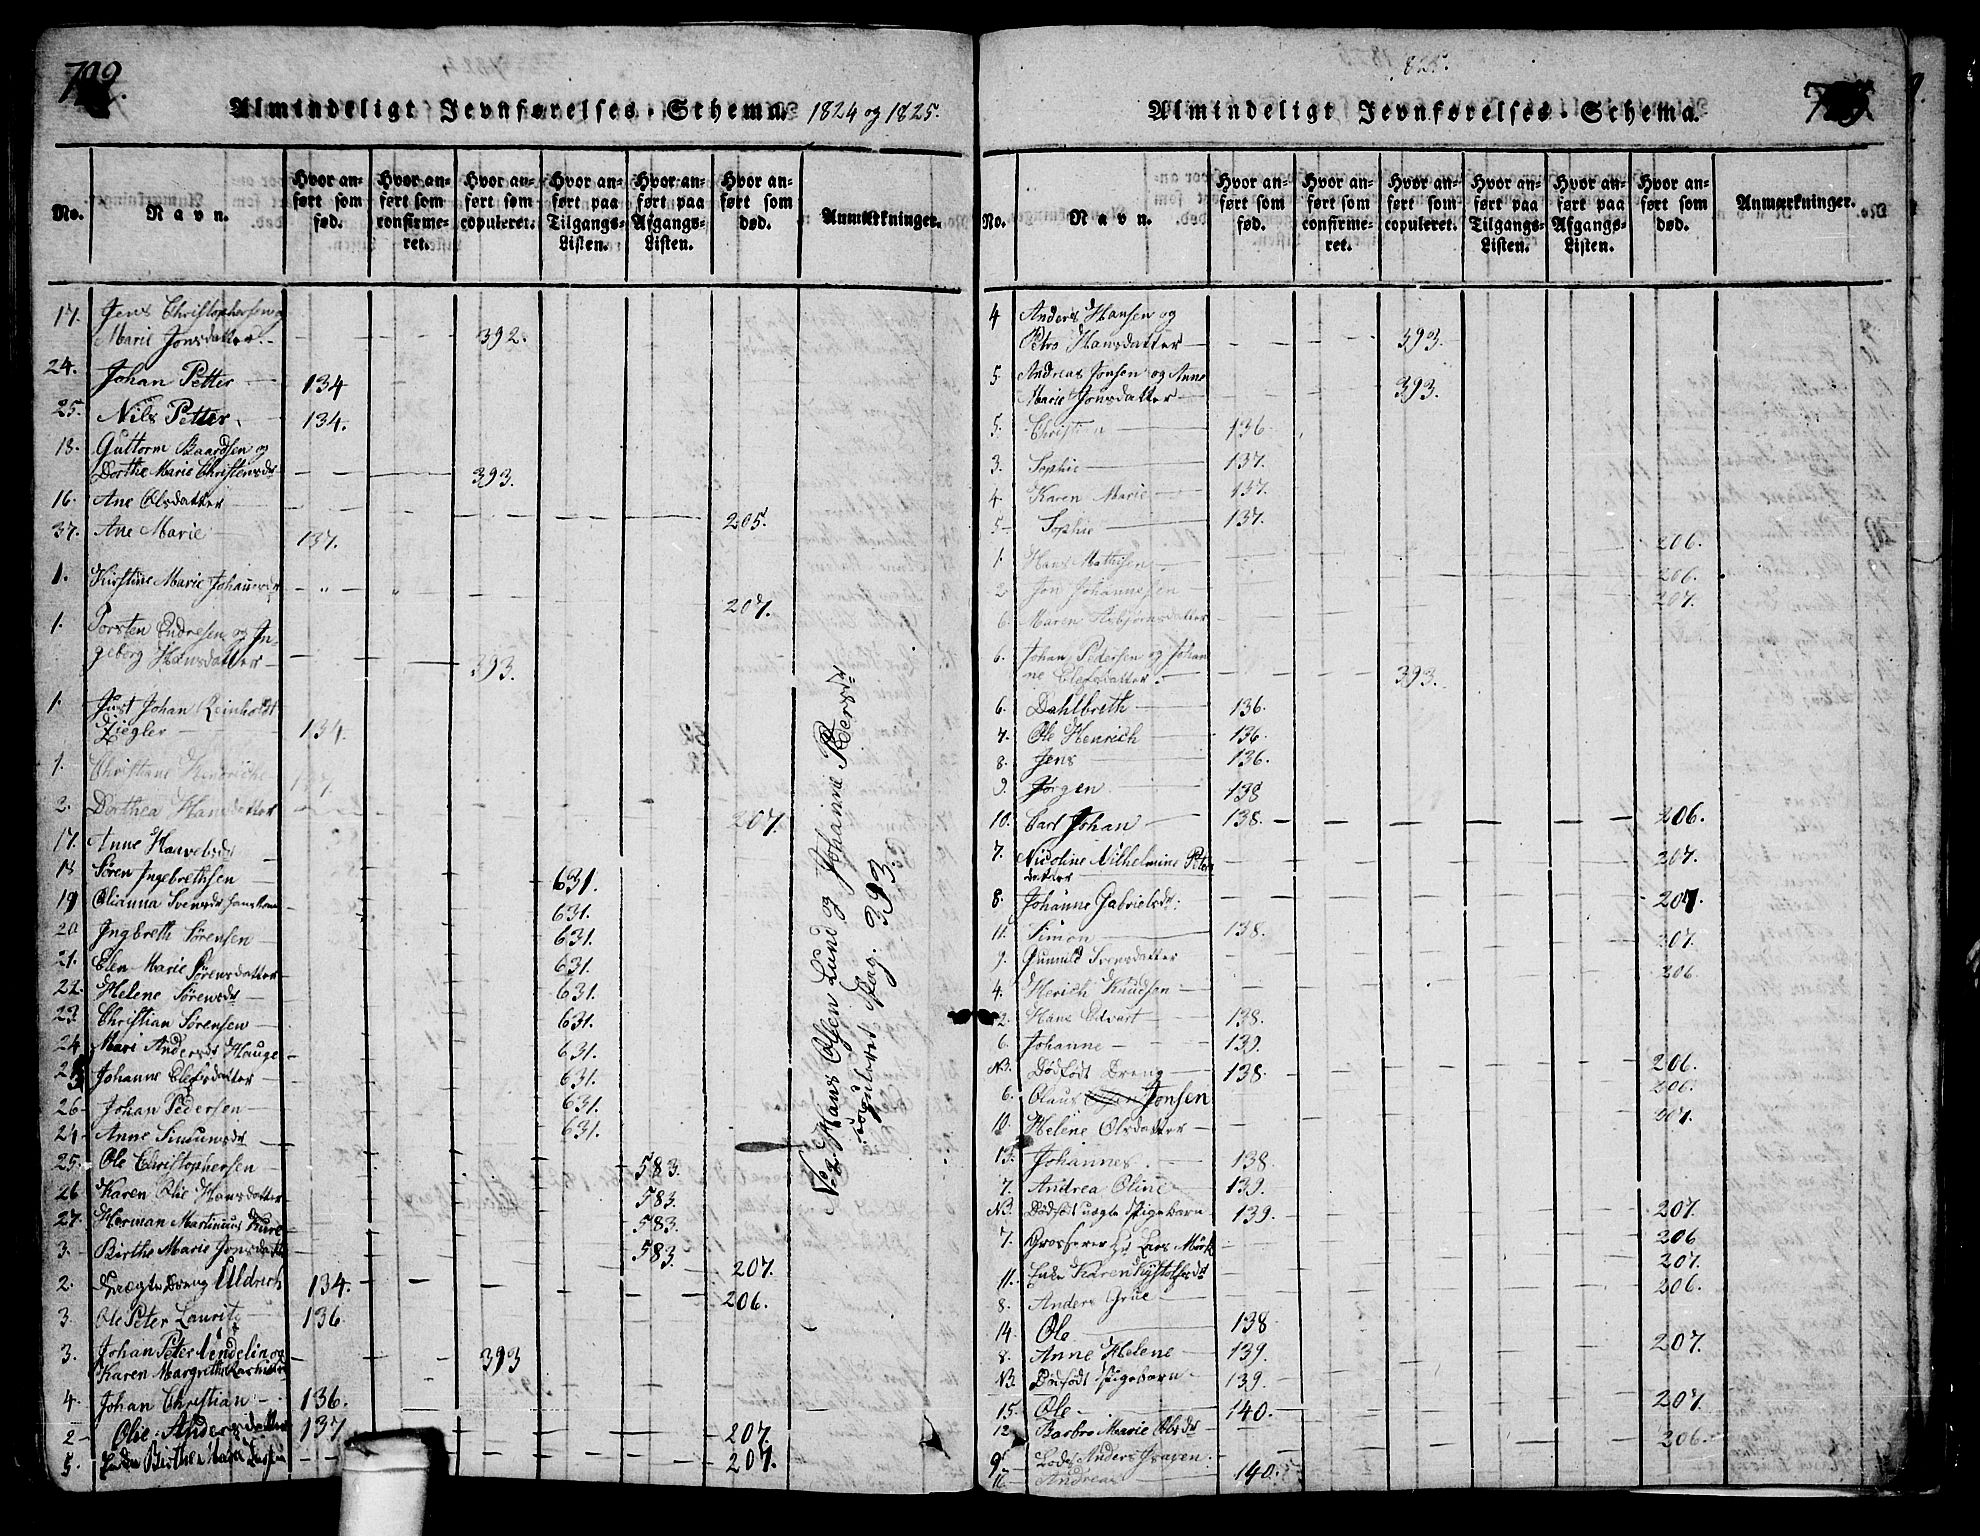 Almindeligt Jevnførelses-Schema 1824 og 1825.
No. Navn. Hvor anført som fød. Hvor anført som confirmeret. Hvor anført som copuleret. Hvor anført paa Tilgangs-Listen. Hvor anført paa Afgangs-Listen. Hvor anført som død. Anmærkninger.
17. Jens Christophersen og
Marie Jonsdatter. 392.
24. Johan Petter 134
25. Nils Petter 134.
18. Guttorm Baardsen og
Dorthe Marie Christensdr 393.
16. Ane Olsdatter 205.
37. Ane Marie 137.
1. Kirstine Marie Johansdr 207.
1. Torsten Endresen og In-
geborg Hansdatter 393.
1. Just Johan Reinholdt
Ziegler 134.
1. Christiane Henriche 137.
2. Dorthea Hansdatter 207.
17. Anne Havelsdr
18 Sören Ingebrethsen 631.
19 Olianna Svensdr 631.
20 Ingbreth Sörensen 631.
21. Elen Marie Sörensdatter 631.
22. Helene Sörensdr 631.
23. Christian Sörensen 631.
24 Mari Andersdr Hauge 631.
25 Johanne Olefsdatter 631.
26 Johan Pedersen 631.
24 Anne Simunsdr 631.
25. Ole Christophersen 583.
26 Karen Olie Hansdatter 583.
27. Herman Martinius Kure 583.
3. Birthe Marie Jonsdatter 583. 207.
2. Uægte Dreng Uldrich 134. 206.
3. Ole Peter Lauritz 136
3. Johan Peter Vendelin og
Karen Margrethe 393
4. Johan Christian 136.
2 Olie Andersdatter 137 207.
5. Enke Birthe Maria 207.
No 2 Hans Olsen Lund og Johanne Pedersdr
copuleret Pag. 393.
Almindeligt Jevnførelses-Schema.
No. Navn. Hvor anført som fød. Hvor anført som confirmeret. Hvor anført som copuleret. Hvor anført paa Tilgangs-Listen. Hvor anført paa Afgangs-Listen. Hvor anført som død. Anmærkninger.
4 Anders Hansen og
Petro Hansdatter 393.
5. Andreas Jonsen og Anne
Marie Jonsdatter 393.
5. Christian 136
3. Sophie 137.
4. Karen Marie 137.
5 Sophie 137.
1. Hans Mathisen 206.
2 Jon Johannesen 206.
6. Maren Asbjørnsdatter 207.
6. Johan Pedersen og Johan
ne Olefsdatter 393.
6. Dahlbreth 136.
7. Ole Henrich 136.
8. Jens 136.
9. Jørgen 138
10. Carl Johan 138. 206.
7. Nicoline Vilhelmine Peters
datter 207.
8. Johanne Gabrielsdr. 207.
11. Simon 138.
9. Gunnild Svensdatter 207.
4. Herich Knudsen 206
12. Hans Edvart 138.
6. Johanne 139.
No. Dødfødt Dreng 138. 206.
6. Olaus Jonsen 206.
10. Helene Olsdatter 207.
13. Johannes 138.
7. Andrea Oline 139.
No. Dødfødt uægte Pigebarn 139. 207.
7. Grosserer Lars Mörk 206
11. Enke Karen Kystolfersdr 207.
8. Anders Grue 206.
14. Ole 138
8. Anne Helene 139. 207.
No. Dødfødt Pigebarn 139.
15. Ole 140. 207.
12 Barbro Marie Olsdr 206.
9. Lods Anders
16 Andreas 140.